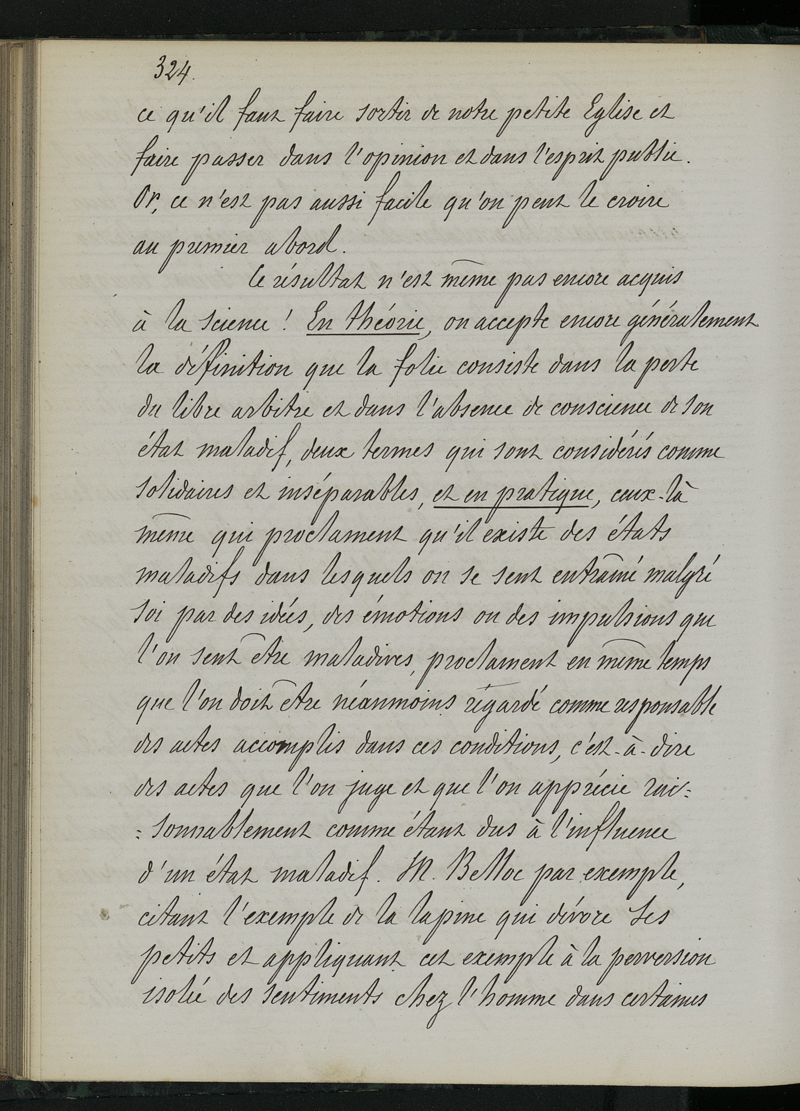 324.
ce qu'il faut faire sortir de notre petite Eglise et
faire passer dans l'opinion et dans l'esprit public.
Or, ce n'est pas aussi facile qu'on peut le croire
au premier abord.
Ce résultat n'est même pas encore acquis
à la science ! En théorie, on accepte encore généralement
la définition que la folie consiste dans la perte
du libre arbitre et dans l'absence de conscience de son
état maladif, deux termes qui sont considérés comme
solidaires et inséparables, et en pratique, ceux-là
même qui proclament qu'il existe des états
maladifs dans lesquels on se sent entraîné malgré
soi par des idées, des émotions ou des impulsions que
l'on sent être maladives, proclament en même temps
que l'on doit être néanmoins régardé comme responsable
des actes accomplis dans ces conditions, c'est-à-dire
des actes que l'on juge et que l'on apprécie rai=
=sonnablement comme étant dus à l'influence
d'un état maladif. M. Belloc par exemple,
citant l'exemple de la lapine qui dévore ses
petits et appliquant cet exemple à la perversion
isolée des sentiments chez l'homme dans certaines